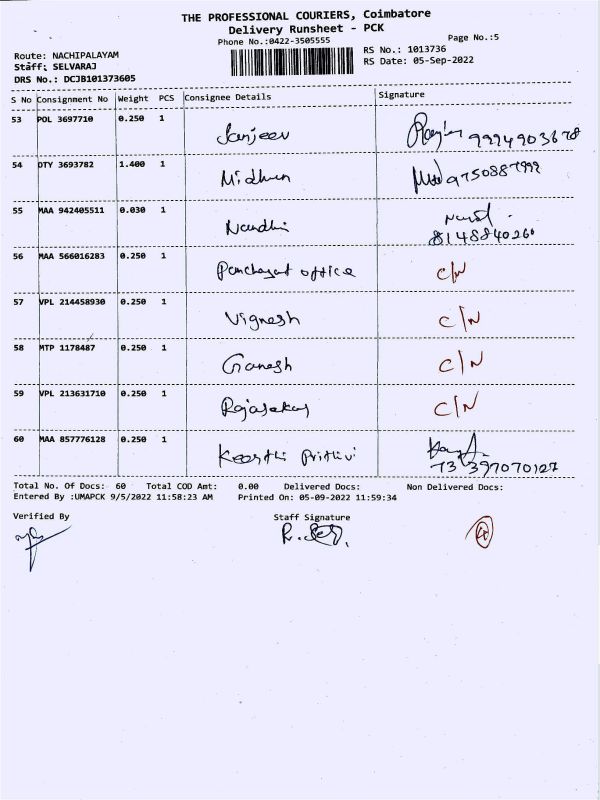 THE PROFESSIONAL COURIERS, Coimbatore
Delivery Runsheet - PCK
Phone No.:0422-3505555
Page No.:5
Route: NACHIPALAYAM
RS No.: 1013736
Staff: SELVARAJ
RS Date: 05-Sep-2022
DRS No.: DCJB101373605
S No Consignment No Weight PCS Consignee Details Signature
53 POL 3697710 0.250 1 Sanjeev 9994903678
54 DTY 3693782 1.400 1 Midhun 9750887999
55 MAA 942405511 0.030 1 Nandhi
8148840260
56 MAA 566016283 0.250 1 Panchayat office C/N
57 VPL 214458930 0.250 1 Vignesh C/N
58 MTP 1178487 0.250 1 Ganesh C/N
59 VPL 213631710 0.250 1 Rajasekar C/N
60 MAA 857776128 0.250 1 Keerthi Prithivi
7339707012７
Total No. Of Docs: 60 Total COD Amt: 0.00 Delivered Docs: Non Delivered Docs:
Entered By :UMAPCK 9/5/2022 11:58:23 AM Printed On: 05-09-2022 11:59:34
Verified By Staff Signature